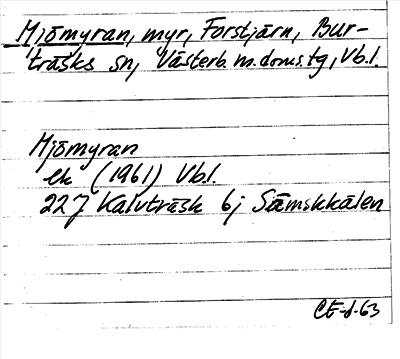 Mjömyran, myr, Forstjärn, Bur-
träsks sn, Västerb. m. doms.tg, Vb.l.
Mjömyran
ek (1961) Vb.l.
22J Kalvträsk 6j Sämskkälen
CE-d-63